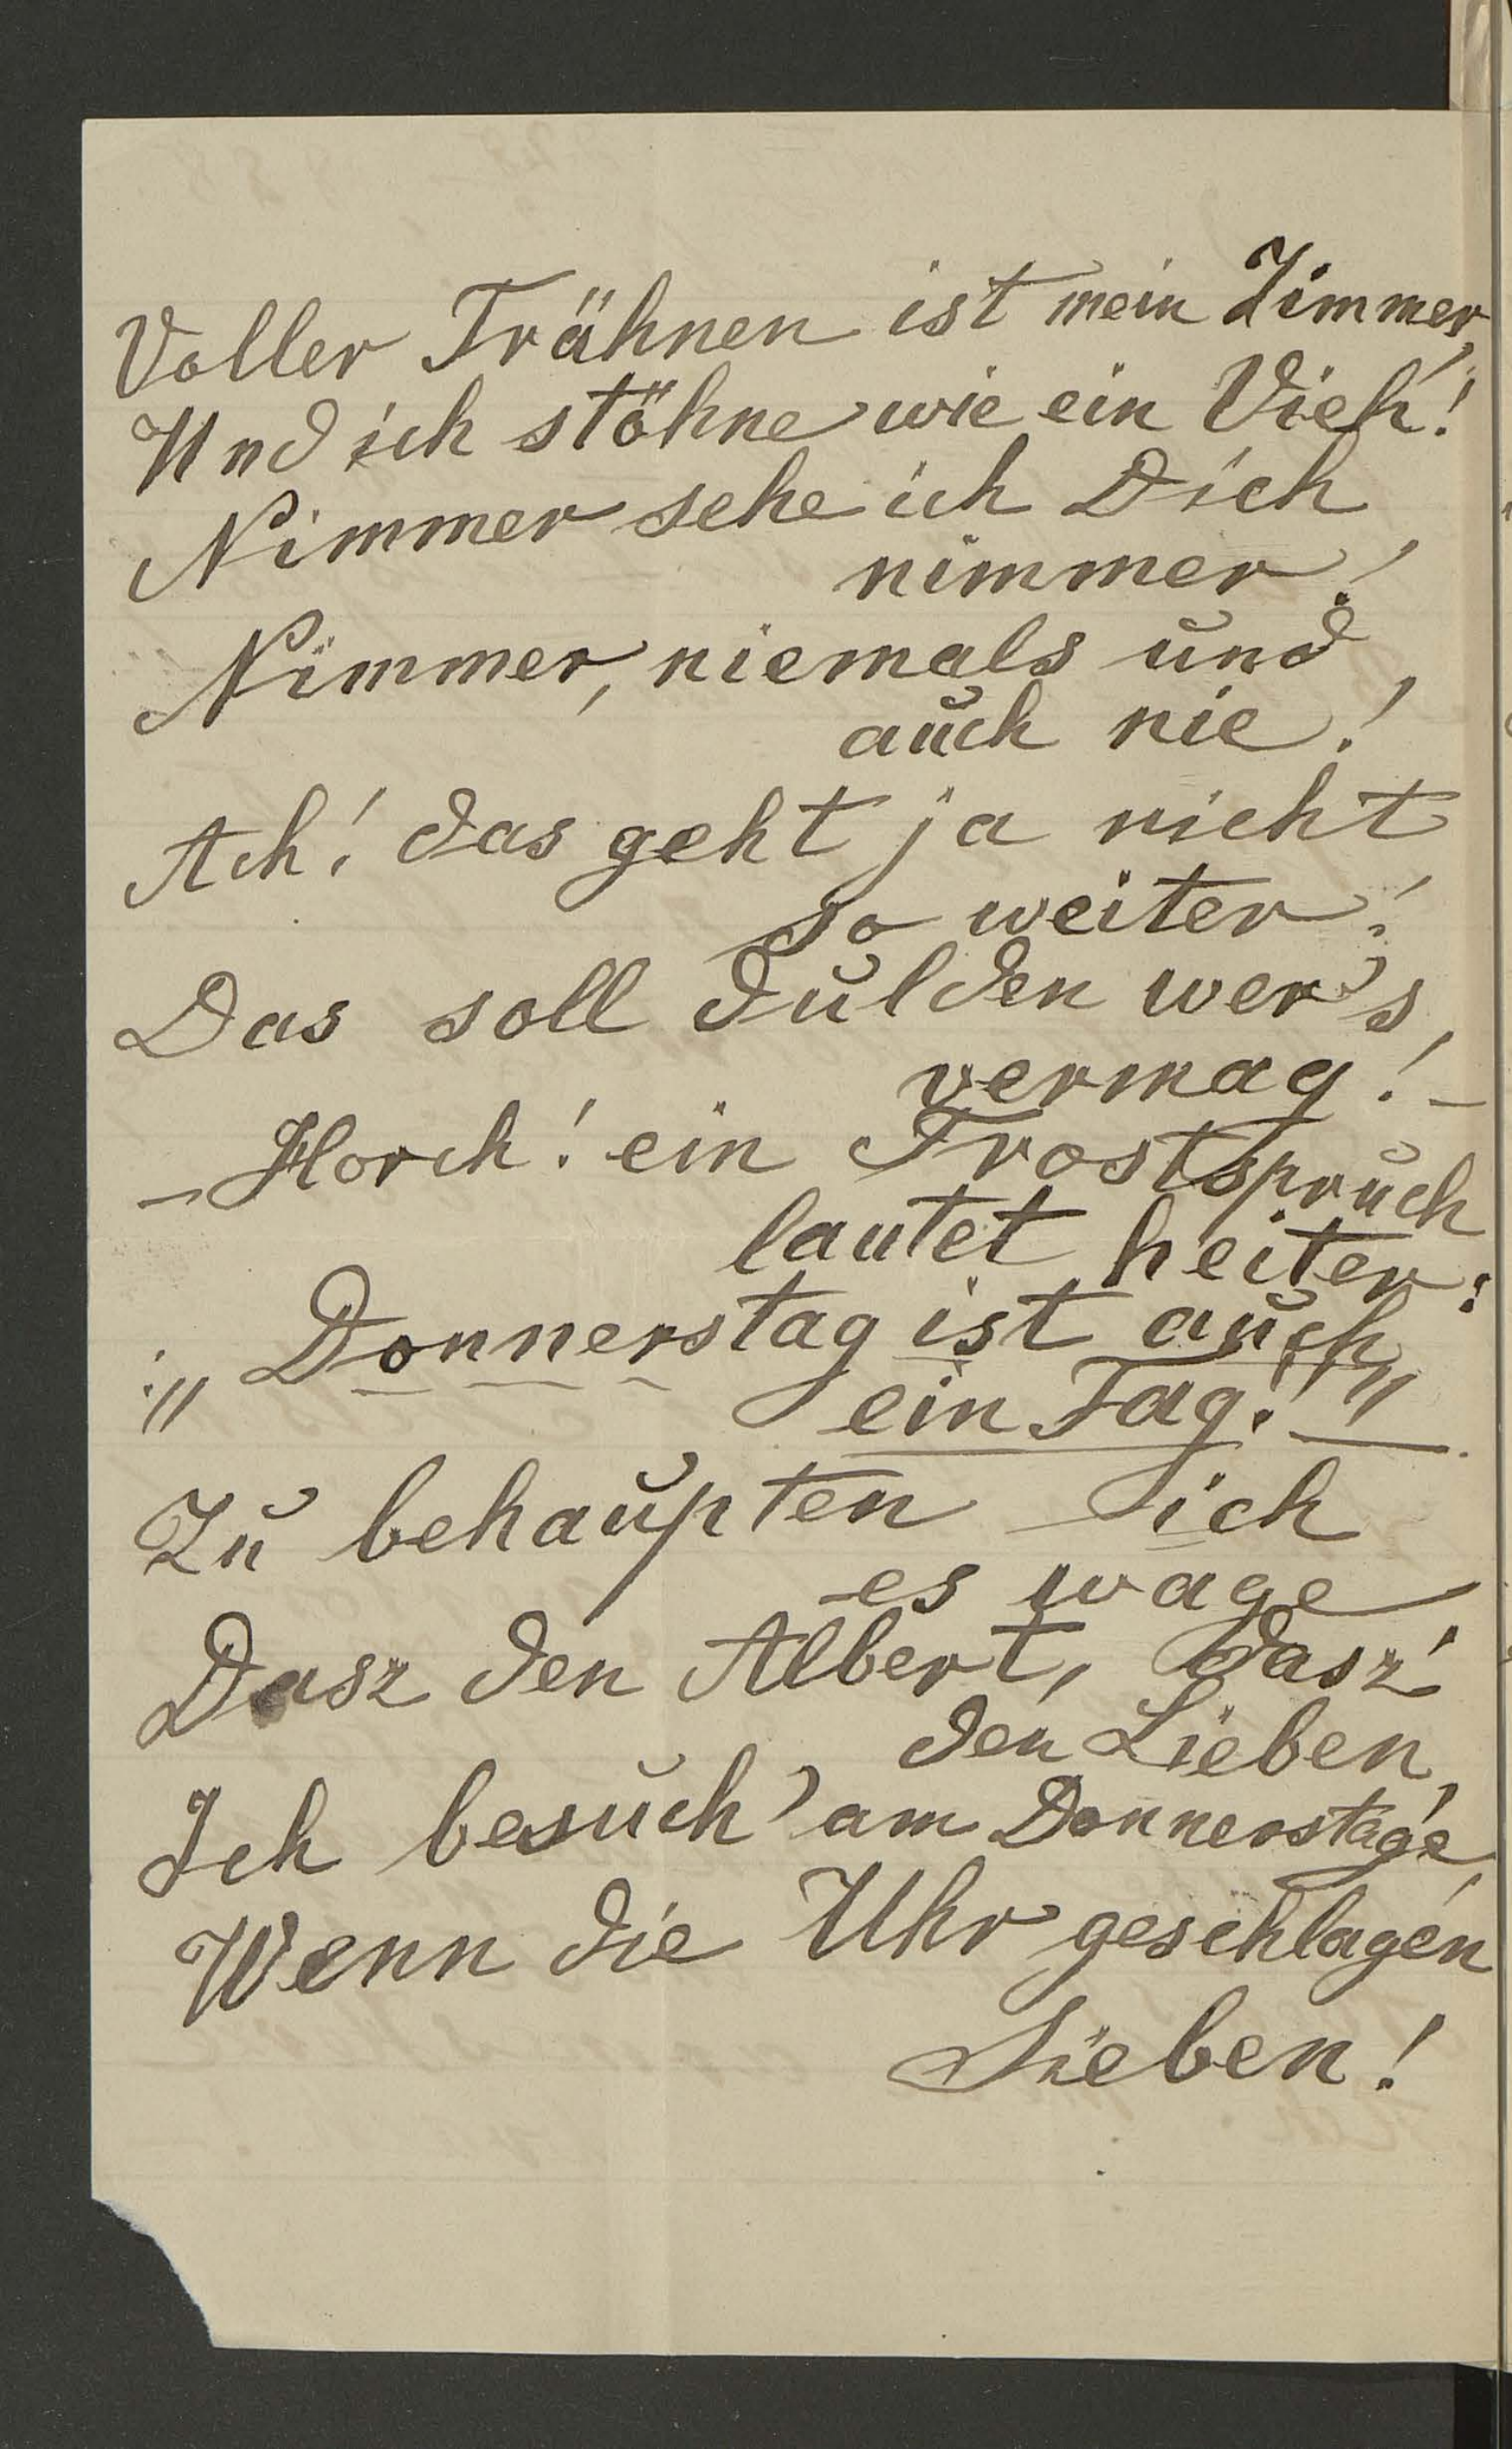 Voller Trähnen ist mein Zimmer,
Und ich stöhne wie ein Vieh!
Nimmer sehe ich Dich
nimmer!
Nimmer, niemals und
auch nie!
Ach! das geht ja nicht
so weiter!
Das soll dulden wer's
vermag! –
– Horch! ein Trostspruch
lautet heiter:
:„ Donnerstag ist auch
ein Tag!“ –
Zu behaupten ich
es wage,
Dasz den Albert, dasz
den Lieben,
Ich besuch' am Donnerstage,
Wenn die Uhr geschlagen
Sieben!